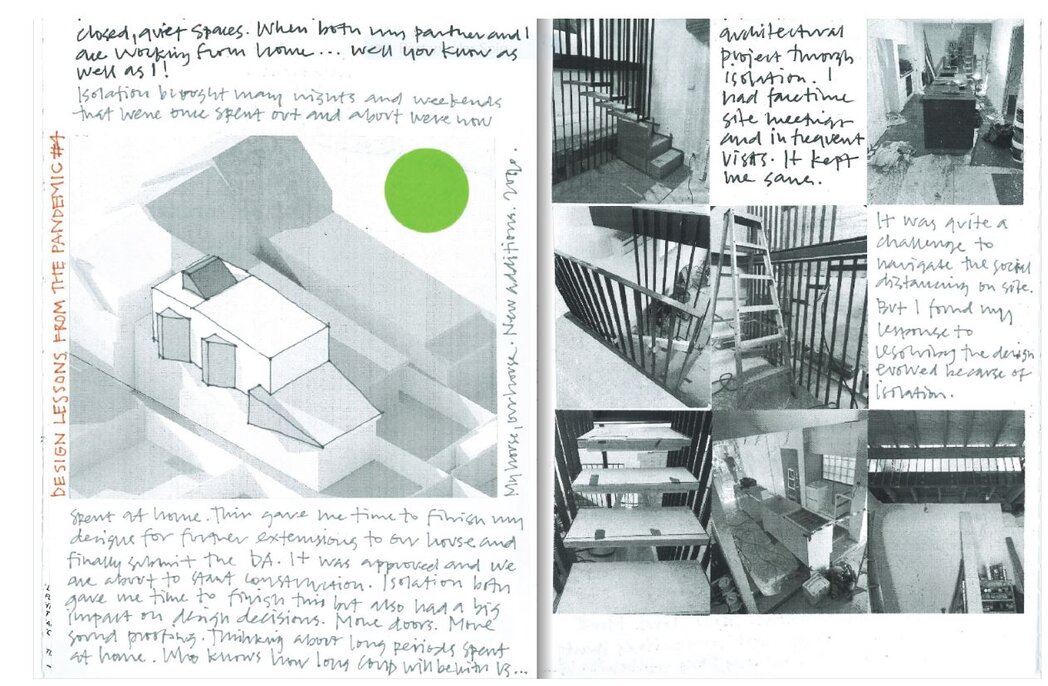 closed, quiet spaces. When both my partner and I
are working from home... well you know as
well as I!
Isolation brought many nights and weekends
that were once spent out and about were now
DESIGN LESSONS FROM THE PANDEMIC #4
My house, birdseye. New additions. 2020.
spent at home. This gave me time to finish my
designs for further extensions to our house and
finally submit the DA. It was approved and we
are about to start construction. Isolation both
gave me time to finish this but also had a big
impact on design decisions. More doors. More
sound proofing. Thinking about long periods spent
at home. Who knows how long COVID will be with us...
architectural
project through
isolation. I
had facetime
site meetings
and infrequent
visits. It kept
me sane.
It was quite a
challenge to
navigate the social
distancing on site.
But I found my
response to
resolving the design
evolved because of
isolation.